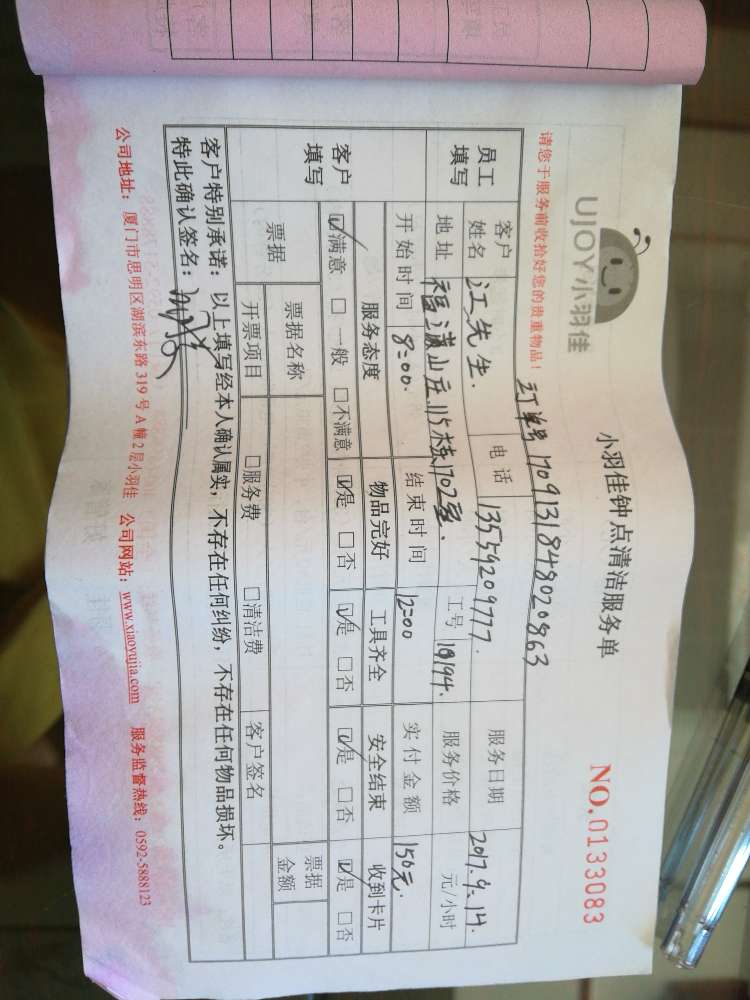 UJOY小羽佳
小羽佳钟点清洁服务单
NO.0133083
请您于服务前收拾好您的贵重物品！
订单号 1709131848020863
员工填写
客户姓名 江先生. 电话 13559209777. 服务日期 2017.9.14.
地址 福满山庄.115栋1702室. 工号 19194. 服务价格 元/小时
开始时间 8:00. 结束时间 12:00 实付金额 150元.
客户填写
服务态度 物品完好 工具齐全 安全结束 收到卡片
☑满意 □一般 □不满意 ☑是 □否 ☑是 □否 ☑是 □否 ☑是 □否
票据 票据名称 票据金额
开票项目 □服务费 □清洁费 客户签名
客户特别承诺：以上填写经本人确认属实，不存在任何纠纷，不存在任何物品损坏。
特此确认签名：
公司地址：厦门市思明区湖滨东路 319 号 A 幢 2 层小羽佳 公司网站：www.xiaoyujia.com 服务监督热线：0592-5888123